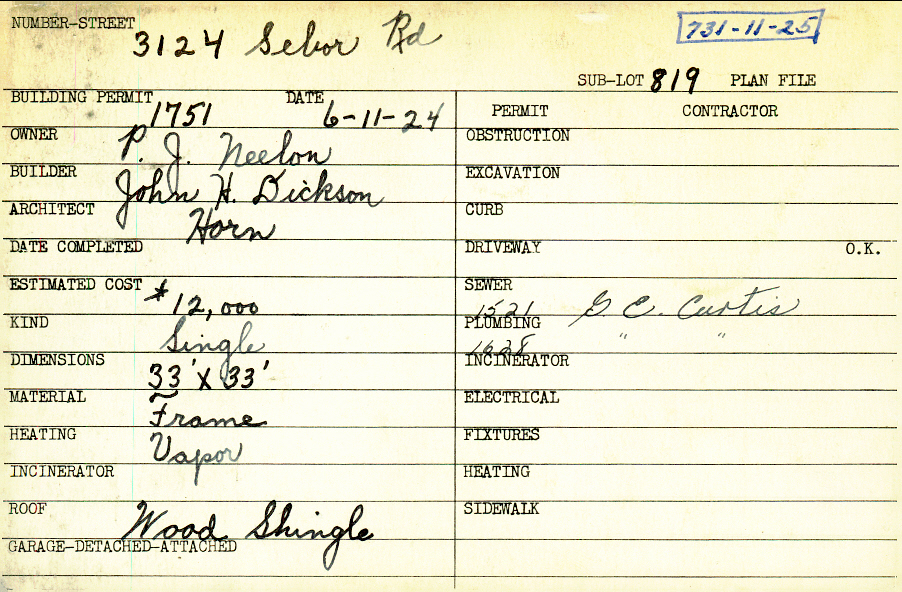 NUMBER-STREET 3124 Sebor Rd 731-11-25
SUB-LOT 819 PLAN FILE
BUILDING PERMIT 1751 DATE 6-11-24
PERMIT CONTRACTOR
OWNER P. J. Neelon
OBSTRUCTION
BUILDER John H. Dickson
EXCAVATION
ARCHITECT Horn
CURB
DATE COMPLETED
DRIVEWAY O.K.
ESTIMATED COST $12,000
SEWER 1521 G E. Curtis
KIND Single
PLUMBING 1628 " "
DIMENSIONS 33' X 33'
INCINERATOR
MATERIAL Frame
ELECTRICAL
HEATING Vapor
FIXTURES
INCINERATOR
HEATING
ROOF Wood Shingle
SIDEWALK
GARAGE-DETACHED-ATTACHED